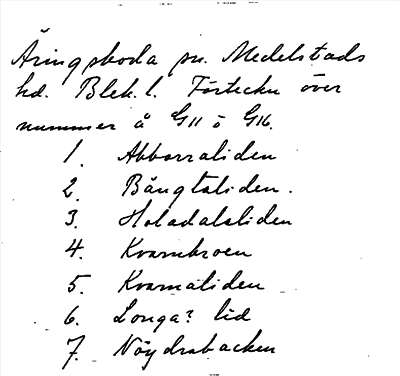 Äringsboda sn. Medelstads
hd. Blek. l. Förteckn över
nummer å G11 o G16.
1. Abborraliden
2. Bångtaliden.
3. Holadalsliden
4. Kvarnbroen
5. Kvarnaliden
6. Longa? lid
7. Nöjdrabacken